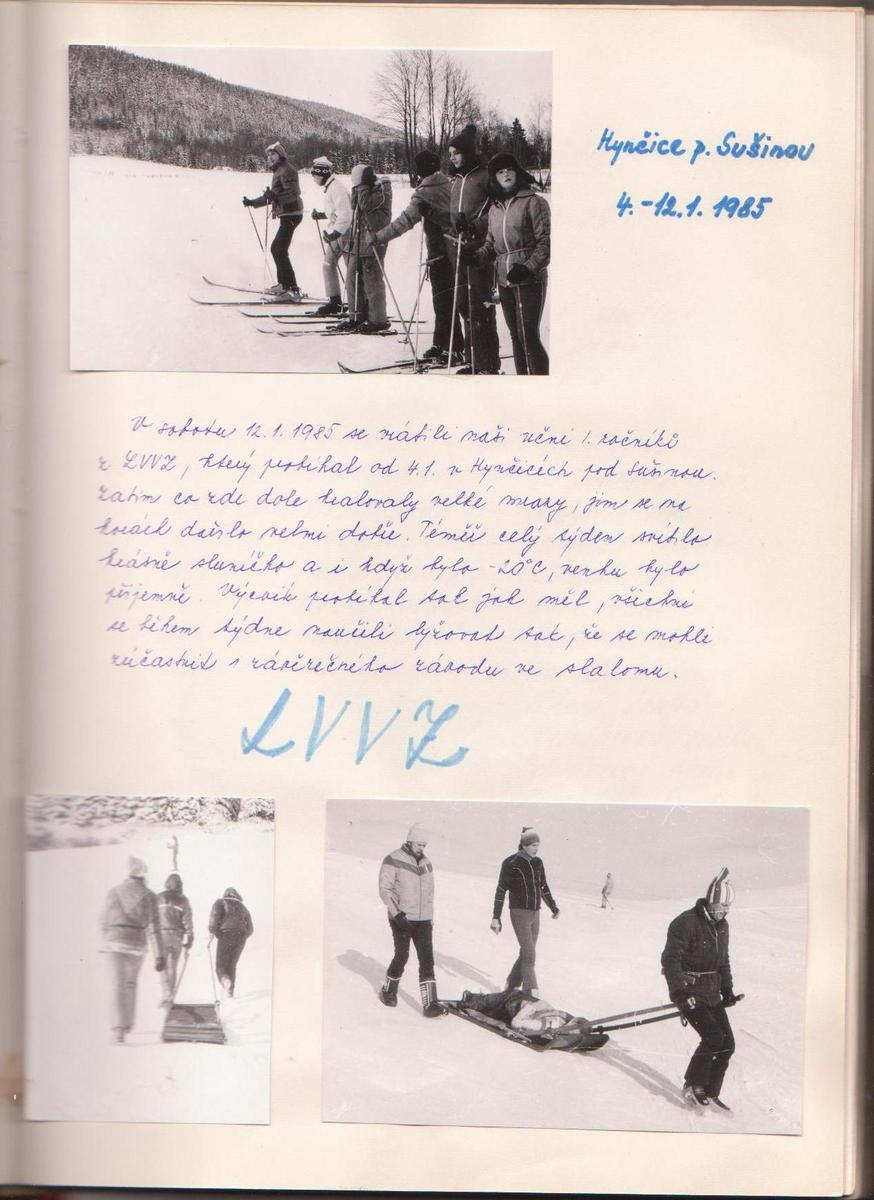 Hynčice p. Sušinou
4.-12.1. 1985
V sobotu 12.1. 1985 se vrátili naši učni 1. ročníků
z LVVZ, který probíhal od 4.1. v Hynčicích pod Sušinou.
Zatím co zde dole kralovaly velké mrazy, jim se na
horách dařilo velmi dobře. Téměř celý týden svítilo
krásné sluníčko a i když bylo -20°C, venku bylo
příjemně. Výcvik probíhal tak jak měl, všichni
se během týdne naučili lyžovat tak, že se mohli
zúčastnit i závěrečného závodu ve slalomu.
LVVZ